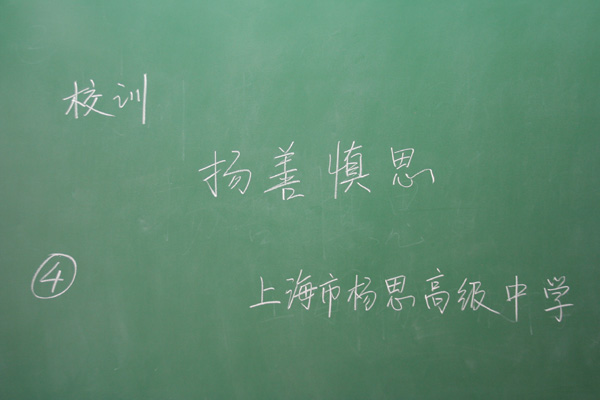 校训
扬善慎思
④
上海市杨思高级中学